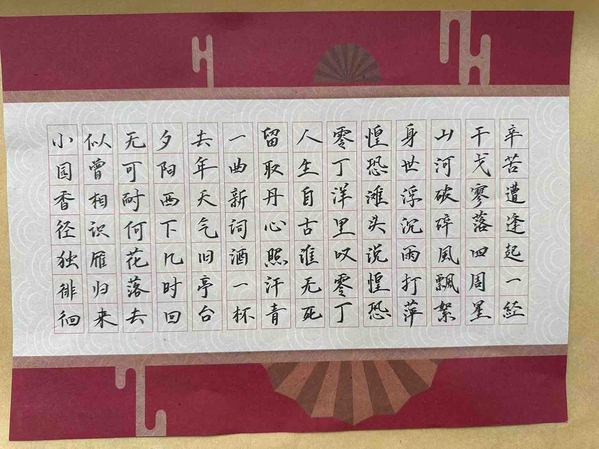 辛苦遭逢起一经
干戈寥落四周星
山河破碎風飄絮
身世浮沉雨打萍
惶恐滩头说惶恐
零丁洋里叹零丁
人生自古谁无死
留取丹心照汗青
一曲新词酒一杯
去年天气旧亭台
夕阳西下几时回
无可耐何花落去
似曾相识雁归来
小园香径独徘徊